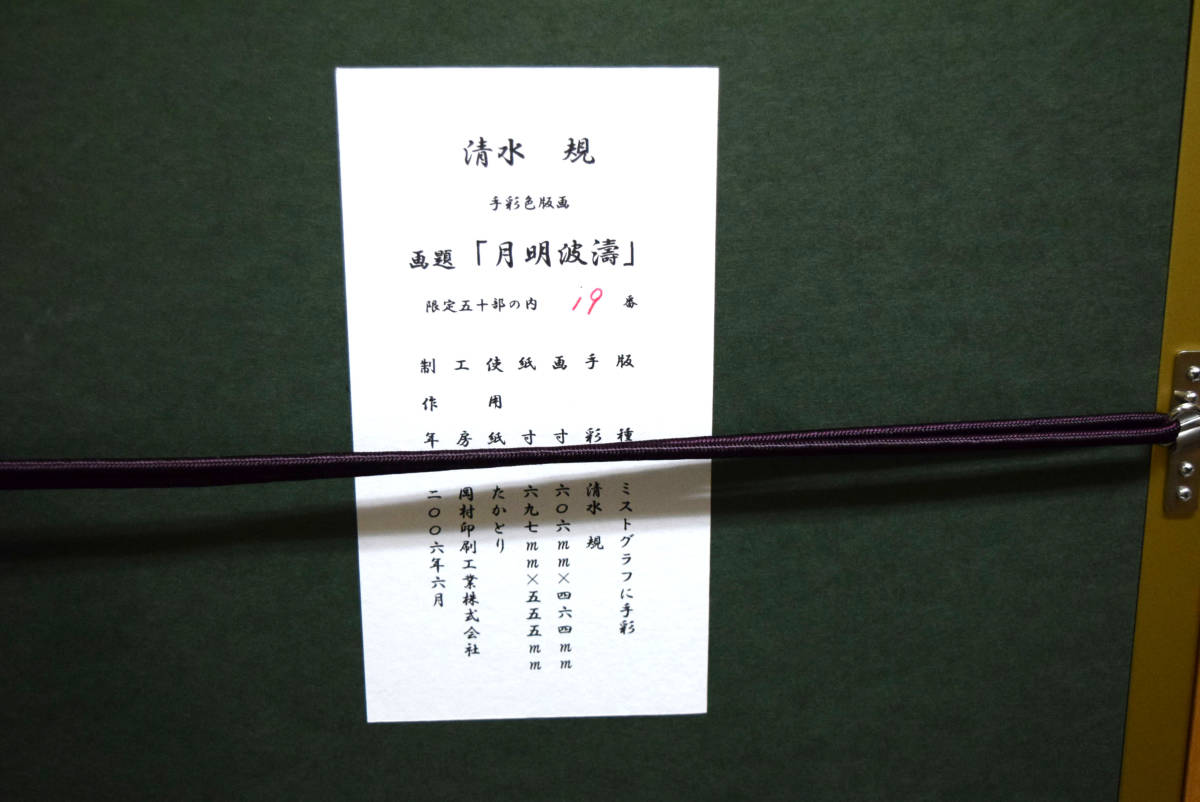 清水 規
手彩色版画
画題「月明波濤」
限定五十部の内 19 番
版種 ミストグラフに手彩
手彩 清水 規
画寸 六〇六mm×四六四mm
紙寸 六九七mm×五五五mm
使用紙 たかとり
工房 岡村印刷工業株式会社
制作年 二〇〇六年六月